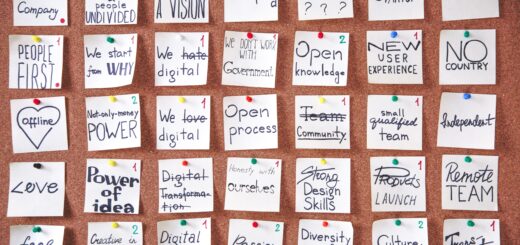 Company.
people
UNDIVIDED
A VISION
? ? ?
PEOPLE
FIRST.
1
We start
from WHY
2
We hate
digital
1
We DON'T WORK
with
Government
1
Open
knowledge
2
NEW
USER
EXPERIENCE
2
NO
COUNTRY
offline
Not-only-money
POWER
2
We love
digital
1
Open
process
1
Team
Community
1
small
qualified
team
Independent
2
Love
Power
of idea
Digital
Transforma-
tion
1
Honesty with
ourselves
Strong
Design
Skills
LAUNCH
1
Remote
TEAM
1
Creative in
2
Digital
1
Passion
Diversity
1
Culture
2
1